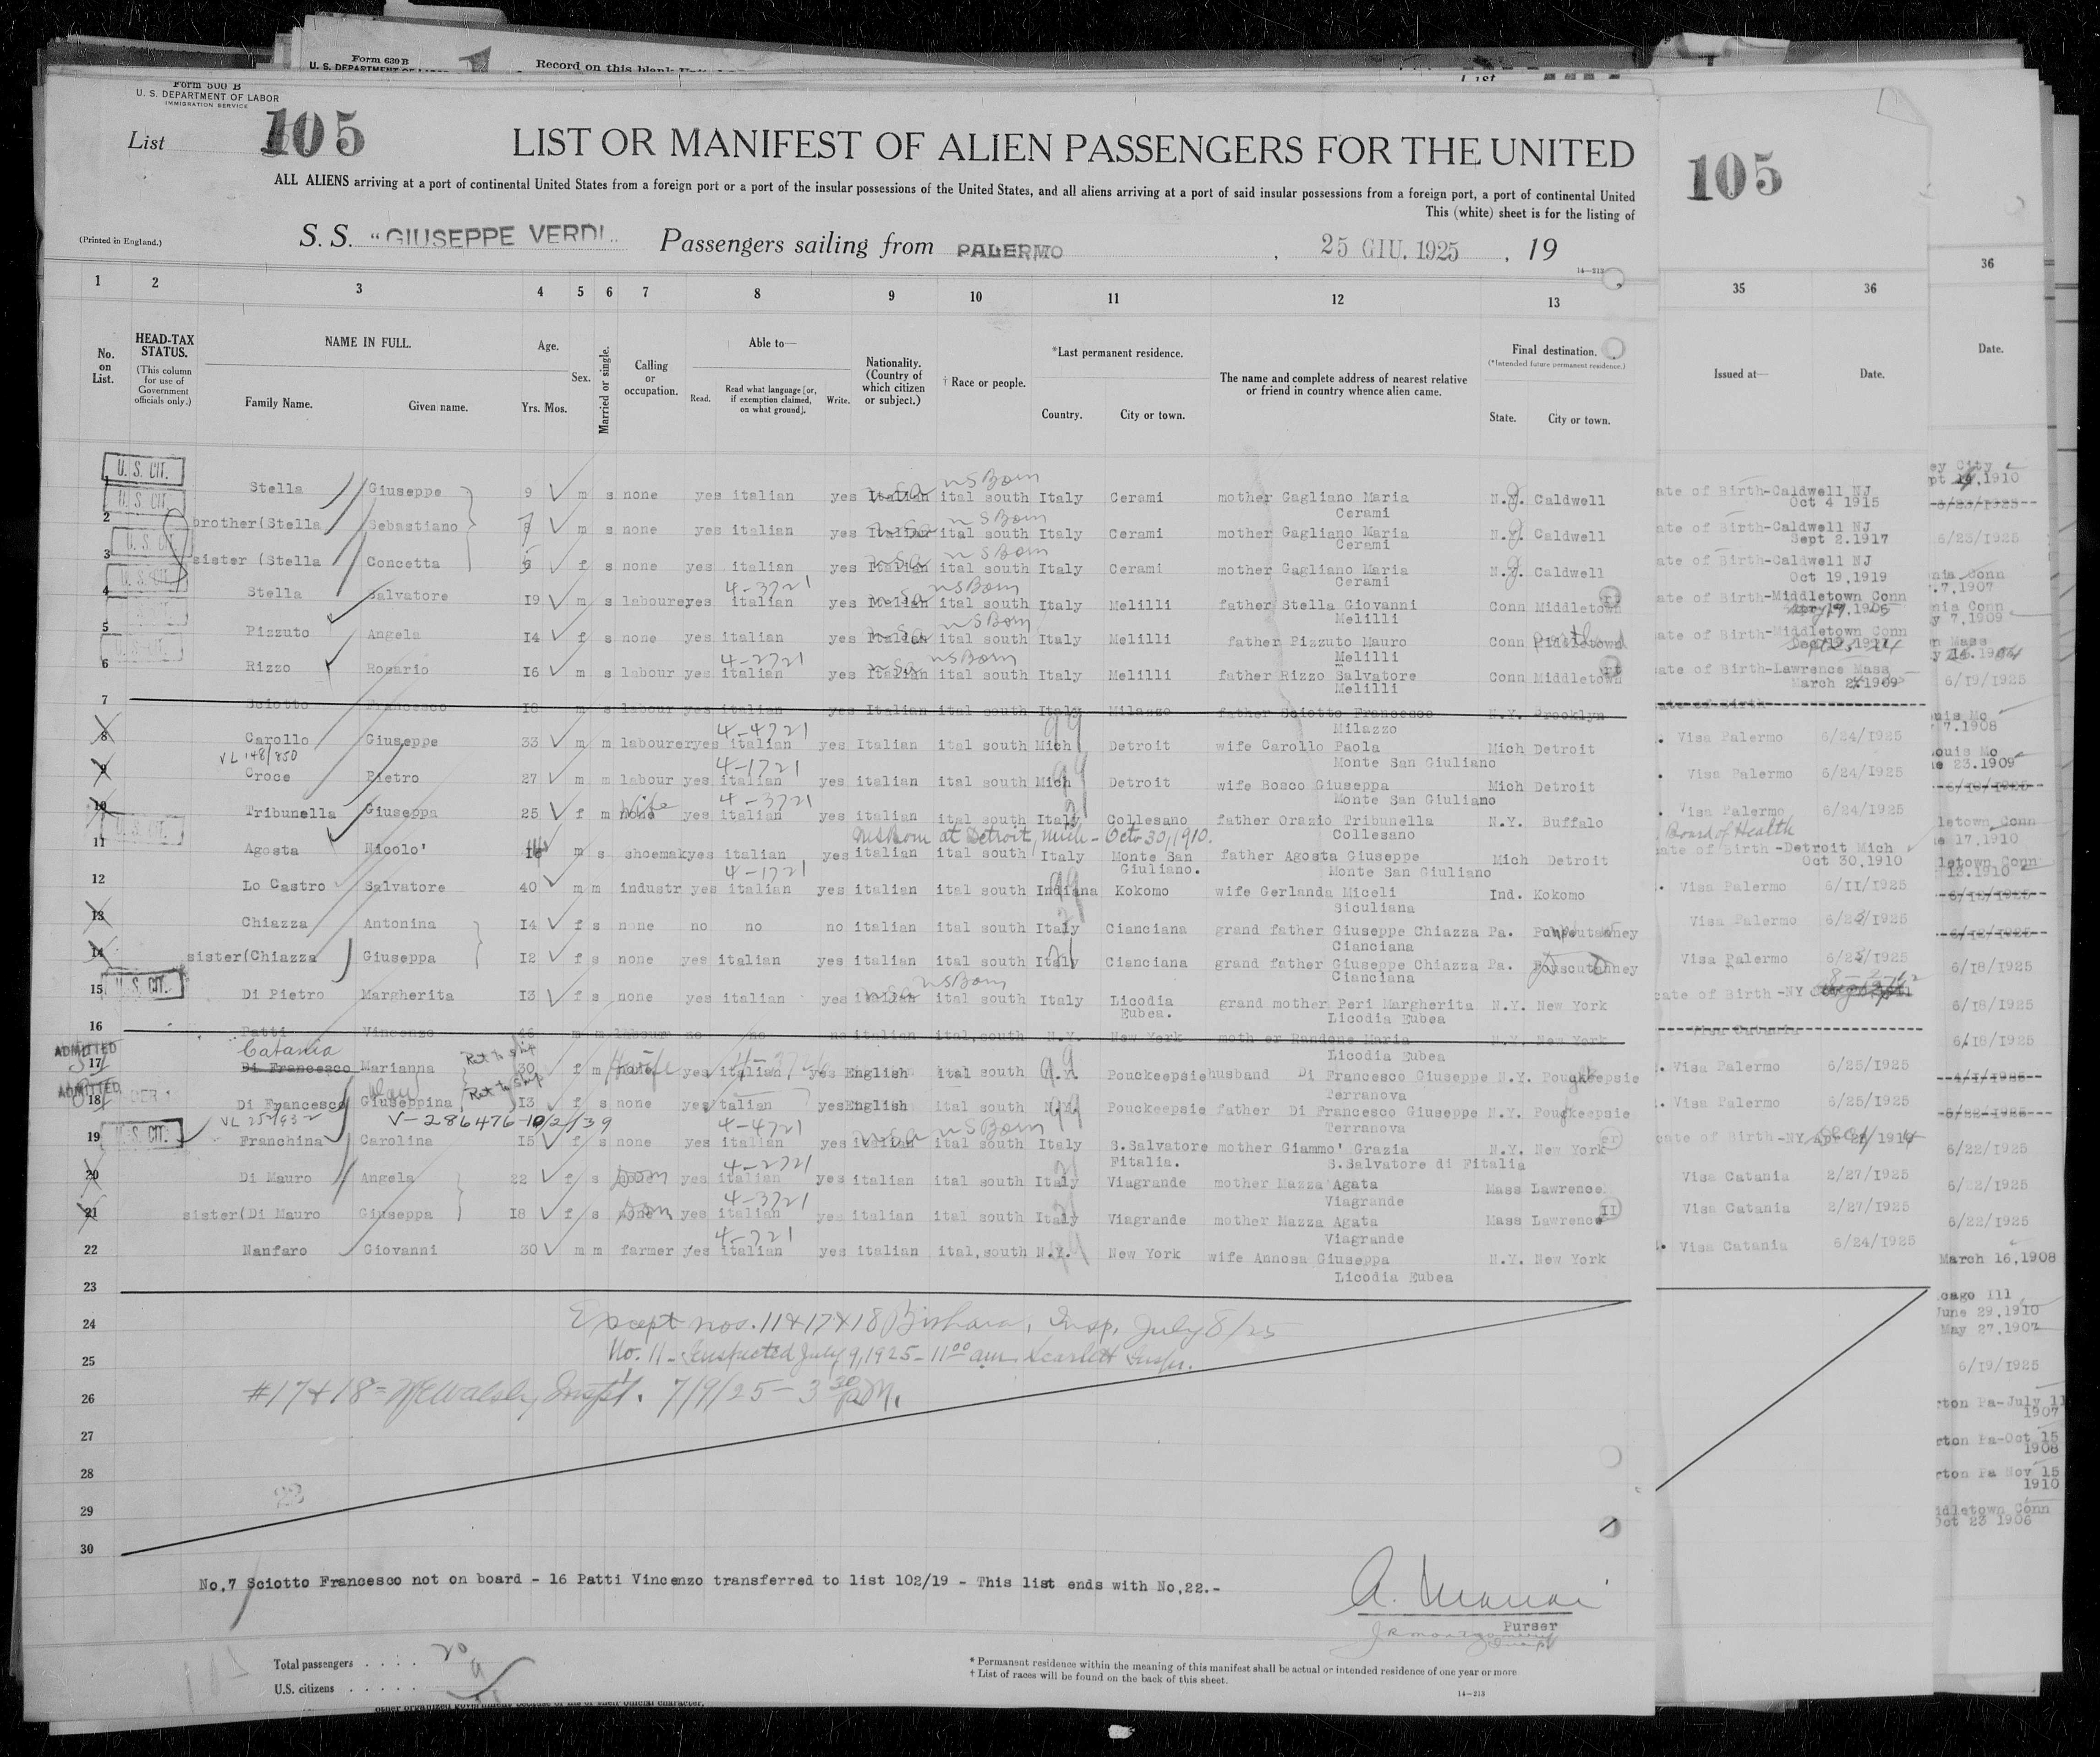 Form 630 B
U. S. DEPARTMENT OF LABOR
Record on this blank
List
Form 500 B
U. S. DEPARTMENT OF LABOR
IMMIGRATION SERVICE
List 105
LIST OR MANIFEST OF ALIEN PASSENGERS FOR THE UNITED
105
ALL ALIENS arriving at a port of continental United States from a foreign port or a port of the insular possessions of the United States, and all aliens arriving at a port of said insular possessions from a foreign port, a port of continental United
This (white) sheet is for the listing of
(Printed in England.)
S. S. "GIUSEPPE VERDI" Passengers sailing from PALERMO, 25 GIU. 1925, 19
14—213
1 2 3 4 5 6 7 8 9 10 11 12 13 35 36 36
No. on List.
HEAD-TAX STATUS.
(This column for use of Government officials only.)
NAME IN FULL.
Family Name. Given name.
Age.
Yrs. Mos.
Sex.
Married or single.
Calling or occupation.
Able to—
Read. Read what language [or, if exemption claimed, on what ground]. Write.
Nationality. (Country of which citizen or subject.)
† Race or people.
*Last permanent residence.
Country. City or town.
The name and complete address of nearest relative or friend in country whence alien came.
Final destination.
(*Intended future permanent residence.)
State. City or town.
Issued at— Date. Date.
U. S. CIT. US Born
1 Stella Giuseppe 9 m s none yes italian yes Italian ital south Italy Cerami mother Gagliano Maria N.J. Caldwell ate of Birth-Caldwell NJ
Cerami Oct 4 1915
U. S. CIT. US Born
2 brother(Stella Sebastiano 7 m s none yes italian yes Italian ital south Italy Cerami mother Gagliano Maria N.J. Caldwell ate of Birth-Caldwell NJ
Cerami Sept 2.1917
U. S. CIT. US Born
3 sister (Stella Concetta 5 f s none yes italian yes Italian ital south Italy Cerami mother Gagliano Maria N.J. Caldwell ate of Birth-Caldwell NJ
Cerami Oct 19,1919
U. S. CIT. 4-3721 US Born
4 Stella Salvatore I9 m s labourer yes italian yes Italian ital south Italy Melilli father Stella Giovanni Conn Middletown ate of Birth-Middletown Conn
Melilli
US Born
5 Pizzuto Angela I4 f s none yes italian yes Italian ital south Italy Melilli father Pizzuto Mauro Conn Middletown ate of Birth-Middletown Conn
Melilli
U. S. CIT. 4-2721 US Born
6 Rizzo Rosario I6 m s labour yes italian yes Italian ital south Italy Melilli father Rizzo Salvatore Conn Middletown ate of Birth-Lawrence Mass
Melilli March 2 1909
7 Sciotto Francesco I8 m s labour yes italian yes Italian ital south Italy Milazzo father Sciotto Francesco N.Y. Brooklyn ate of Birth
Milazzo
4-4721 99
8 Carollo Giuseppe 33 m m labourer yes italian yes Italian ital south Mich Detroit wife Carollo Paola Mich Detroit Visa Palermo 6/24/1925
Monte San Giuliano
VL 148/850 4-1721 99
9 Croce Pietro 27 m m labour yes italian yes italian ital south Mich Detroit wife Bosco Giuseppa Mich Detroit Visa Palermo 6/24/1925
Monte San Giuliano
Wife 4-3721 21
10 Tribunella Giuseppa 25 f m none yes italian yes italian ital south Italy Collesano father Orazio Tribunella N.Y. Buffalo Visa Palermo 6/24/1925
Collesano
US Born at Detroit, Mich - Oct 30, 1910. Board of Health
11 Agosta Nicolo' I6 m s shoemak yes italian yes italian ital south Italy Monte San Giuliano. father Agosta Giuseppe Mich Detroit ate of Birth-Detroit Mich
Monte San Giuliano Oct 30.1910
4-1721 99
12 Lo Castro Salvatore 40 m m industr yes italian yes italian ital south Indiana Kokomo wife Gerlanda Miceli Ind. Kokomo Visa Palermo 6/II/1925
Siculiana
21
13 Chiazza Antonina I4 f s none no no no italian ital south Italy Cianciana grand father Giuseppe Chiazza Pa. Visa Palermo 6/23/1925
Cianciana
14 sister(Chiazza Giuseppa I2 f s none yes italian yes italian ital south Italy Cianciana grand father Giuseppe Chiazza Pa. Visa Palermo 6/23/1925
Cianciana
U. S. CIT. US Born
15 Di Pietro Margherita I3 f s none yes italian yes italian ital south Italy Licodia Eubea. grand mother Peri Margherita N.Y. New York cate of Birth-NY
Licodia Eubea
16 Patti Vincenzo 46 m m labour no no no italian ital,south N.Y. New York mother Randone Maria N.Y. New York Visa Catania
Licodia Eubea
ADMITTED Catania Ret to Ship 99
17 Di Francesco Marianna 30 f m Wife yes italian yes English ital south N.Y. Pouckeepsie husband Di Francesco Giuseppe N.Y. Poughkeepsie Visa Palermo 6/25/1925
Terranova
ADMITTED Ret to Ship
18 Di Francesco Giuseppina I3 f s none yes italian yes English ital south N.Y. Pouckeepsie father Di Francesco Giuseppe N.Y. Pouckeepsie Visa Palermo 6/25/1925
Terranova
V-286476-10/2/39 4-4721
U. S. CIT. US Born
19 Franchina Carolina I5 f s none yes italian yes italian ital south Italy S.Salvatore Fitalia. mother Giammo' Grazia N.Y. New York cate of Birth-NY
S.Salvatore di Fitalia
4-2721
20 Di Mauro Angela 22 f s Dom yes italian yes italian ital south Italy Viagrande mother Mazza Agata Mass Lawrence Visa Catania 2/27/1925
Viagrande
4-3721
21 sister(Di Mauro Giuseppa I8 f s Dom yes italian yes italian ital south Italy Viagrande mother Mazza Agata Mass Lawrence Visa Catania 2/27/1925
Viagrande
4-721
22 Nanfaro Giovanni 30 m m farmer yes italian yes italian ital,south N.Y. New York wife Annosa Giuseppa N.Y. New York Visa Catania 6/24/1925
Licodia Eubea
23
24 Except nos. 11 & 17 & 18 Insp. July 8/25
25 No. 11 - Inspected July 9, 1925 - 11 00 am Scarlett Inspr.
26 #17 & 18 = 7/9/25 - 3 30 P.M.
27
28
29
30
No.7 Sciotto Francesco not on board - 16 Patti Vincenzo transferred to list 102/19 - This list ends with No.22.-
Purser
Total passengers . . . . 20
U.S. citizens . . . . .
* Permanent residence within the meaning of this manifest shall be actual or intended residence of one year or more
† List of races will be found on the back of this sheet.
14—213
ey City
6/23/1925
nia Conn
.7.1907
nia Conn
y 7,1909
n Mass
6/19/1925
ouis Mo
7.1908
ouis Mo
e 23.1909
letown Conn
e 17,1910
letown Conn
13.1910
6/12/1925
6/18/1925
6/18/1925
6/18/1925
4/1/1925
6/22/1925
6/22/1925
6/22/1925
March 16,1908
cago Ill
June 29,1910
May 27,1907
6/19/1925
rton Pa-July 11
1907
rton Pa-Oct 15
1908
rton Pa Nov 15
1910
idletown Conn
Oct 23 1906